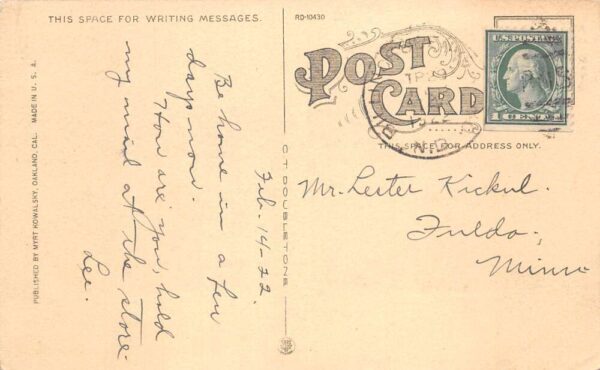 THIS SPACE FOR WRITING MESSAGES.
RD-10430
POST
CARD
U.S. POSTAGE
1 CENT 1
THIS SPACE FOR ADDRESS ONLY.
Mr. Lester Kickul.
Fulda,
Minn
Feb. 14-22.
Be home in a few
days now.
How are you, hold
my mail at the store.
Lee.
C T DOUBLETONE
PUBLISHED BY MYRT KOWALSKY, OAKLAND, CAL. MADE IN U. S. A.